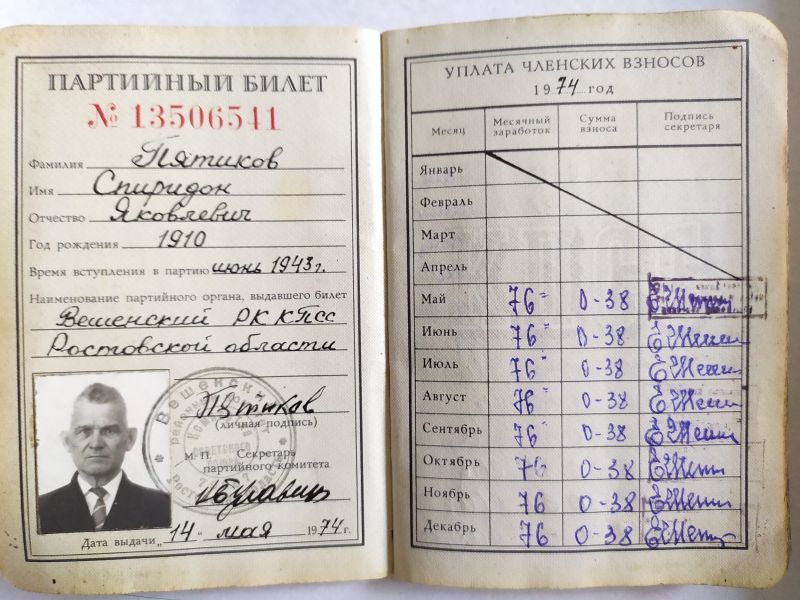 ПАРТИЙНЫЙ БИЛЕТ
№ 13506541
Фамилия Пятиков
Имя Спиридон
Отчество Яковлевич
Год рождения 1910
Время вступления в партию июнь 1943 г.
Наименование партийного органа, выдавшего билет
Вешенский РК КПСС
Ростовской области
Пятиков
(личная подпись)
М. П. Секретарь
партийного комитета
Дата выдачи „14“ мая 1974 г.
УПЛАТА ЧЛЕНСКИХ ВЗНОСОВ
1974 год
Месяц Месячный заработок Сумма взноса Подпись секретаря
Январь
Февраль
Март
Апрель
Май 76= 0-38
Июнь 76= 0-38
Июль 76= 0-38
Август 76= 0-38
Сентябрь 76= 0-38
Октябрь 76 0-38
Ноябрь 76 0-38
Декабрь 76 0-38